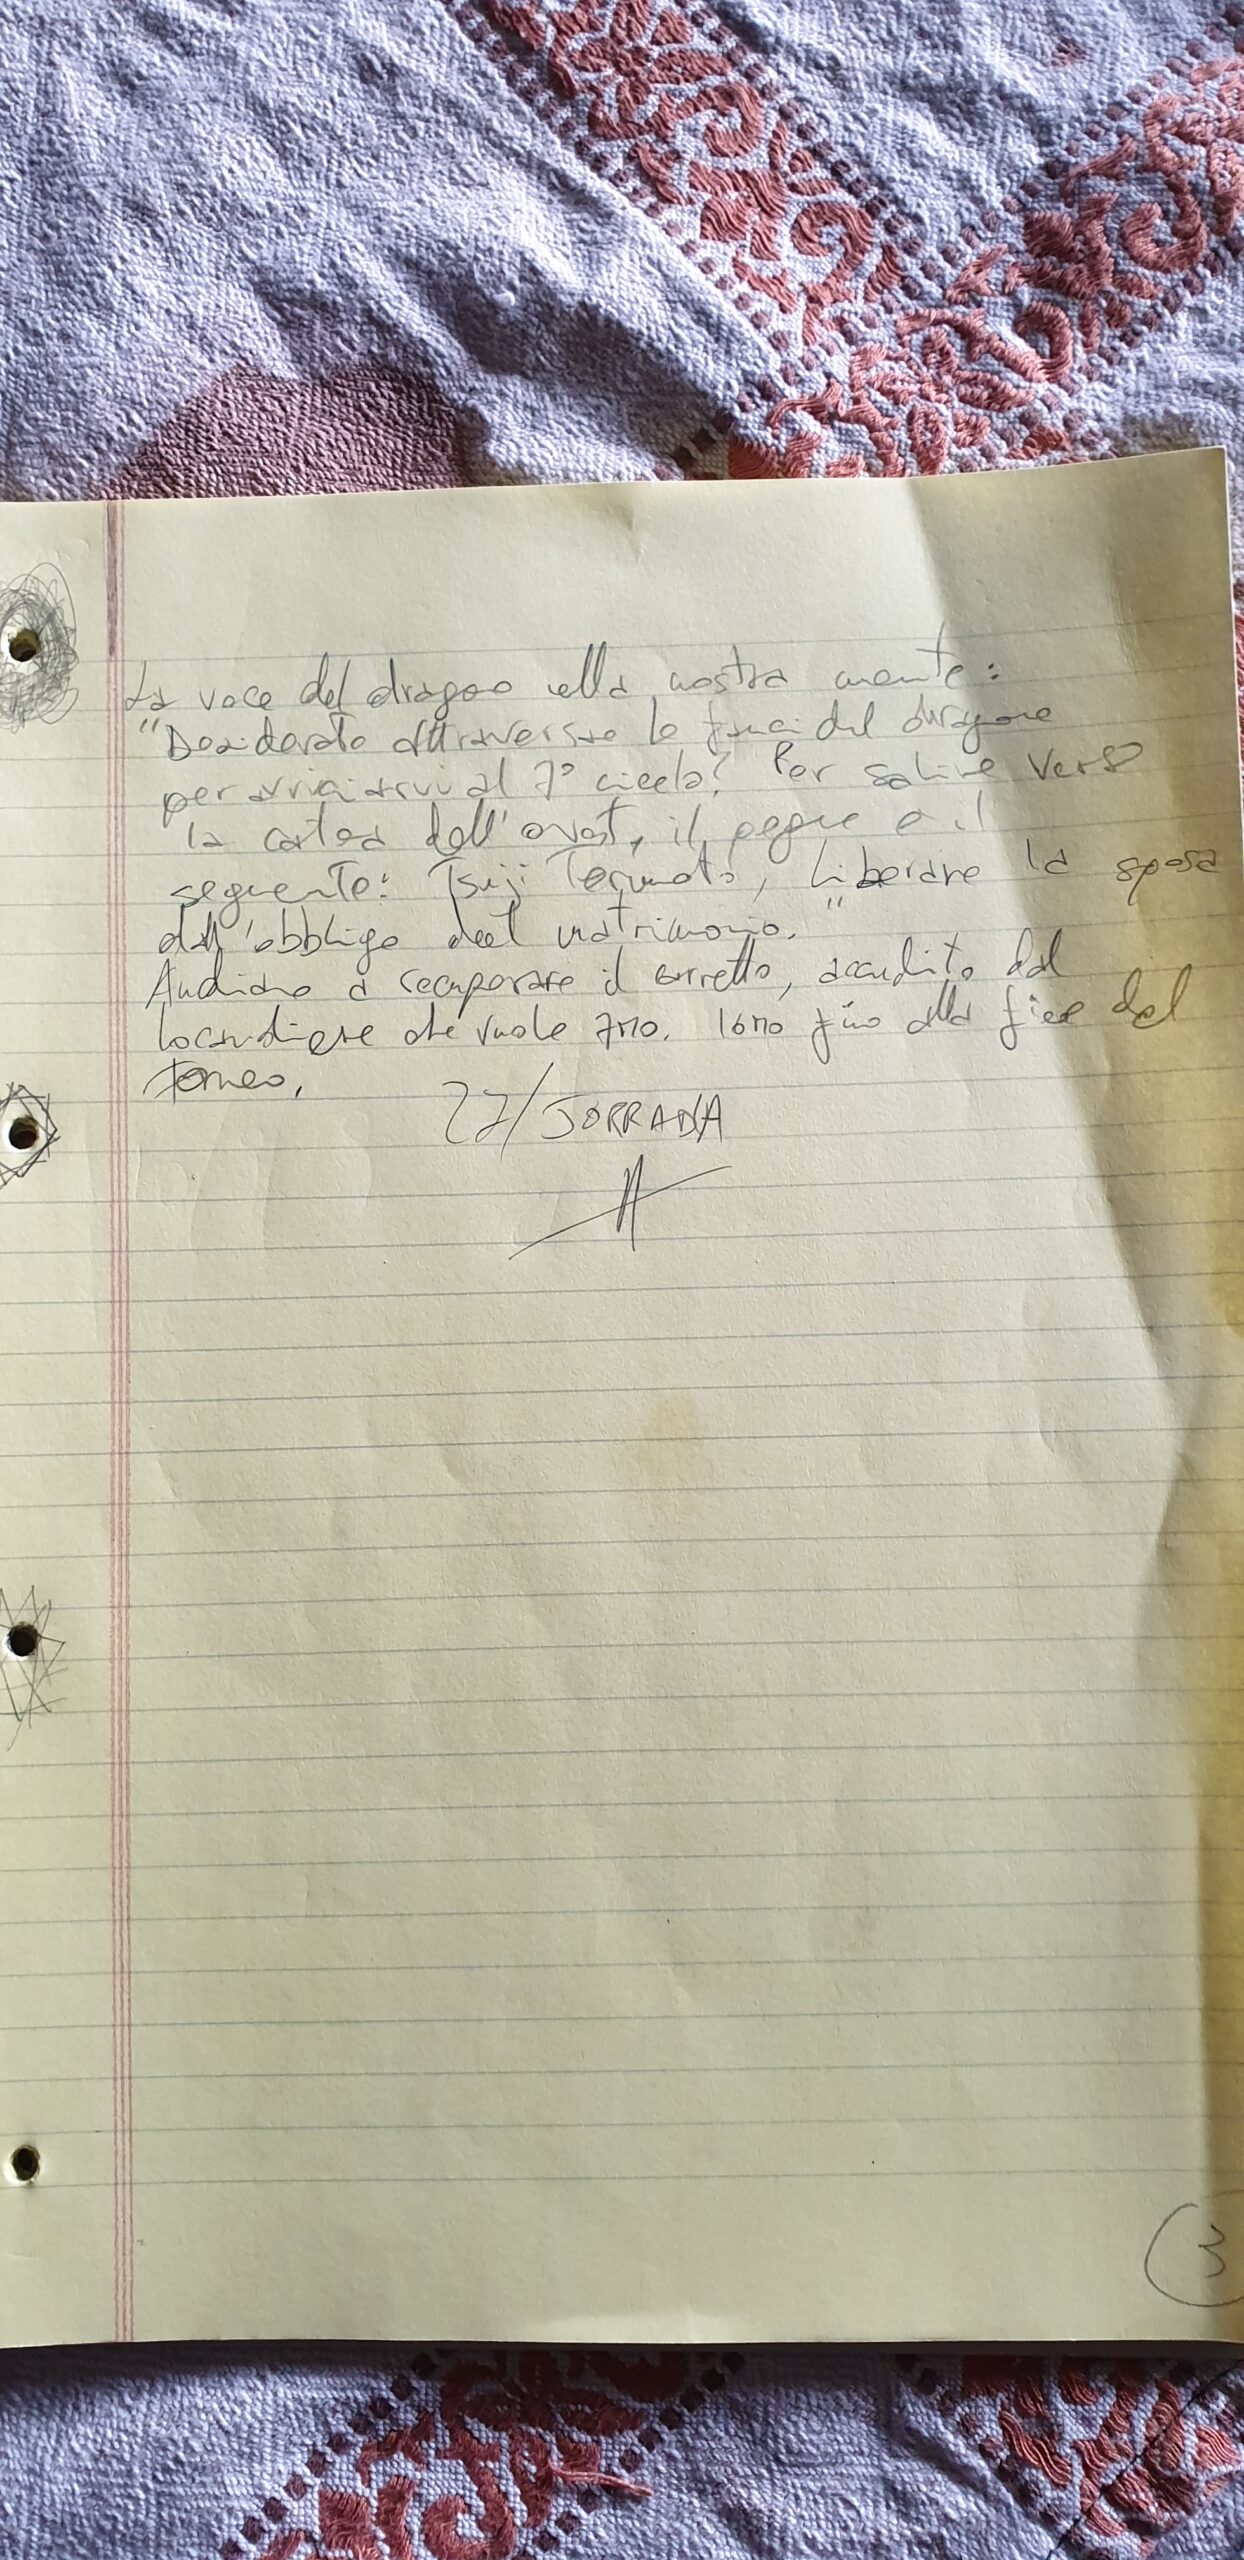 La voce del drago nella nostra mente:
"Desiderate attraversare le fauci del dragone
per avvicinarvi al 7° cielo? Per salire verso
la costa dell'ovest, il pegno è il
seguente: Tsuji Terumoto, liberare la sposa
dall'obbligo del matrimonio."
Andiamo a recuperare il carretto, accudito dal
locandiere che vuole 7mo. 16mo fino alla fine del
torneo.
27/SORRADA
3